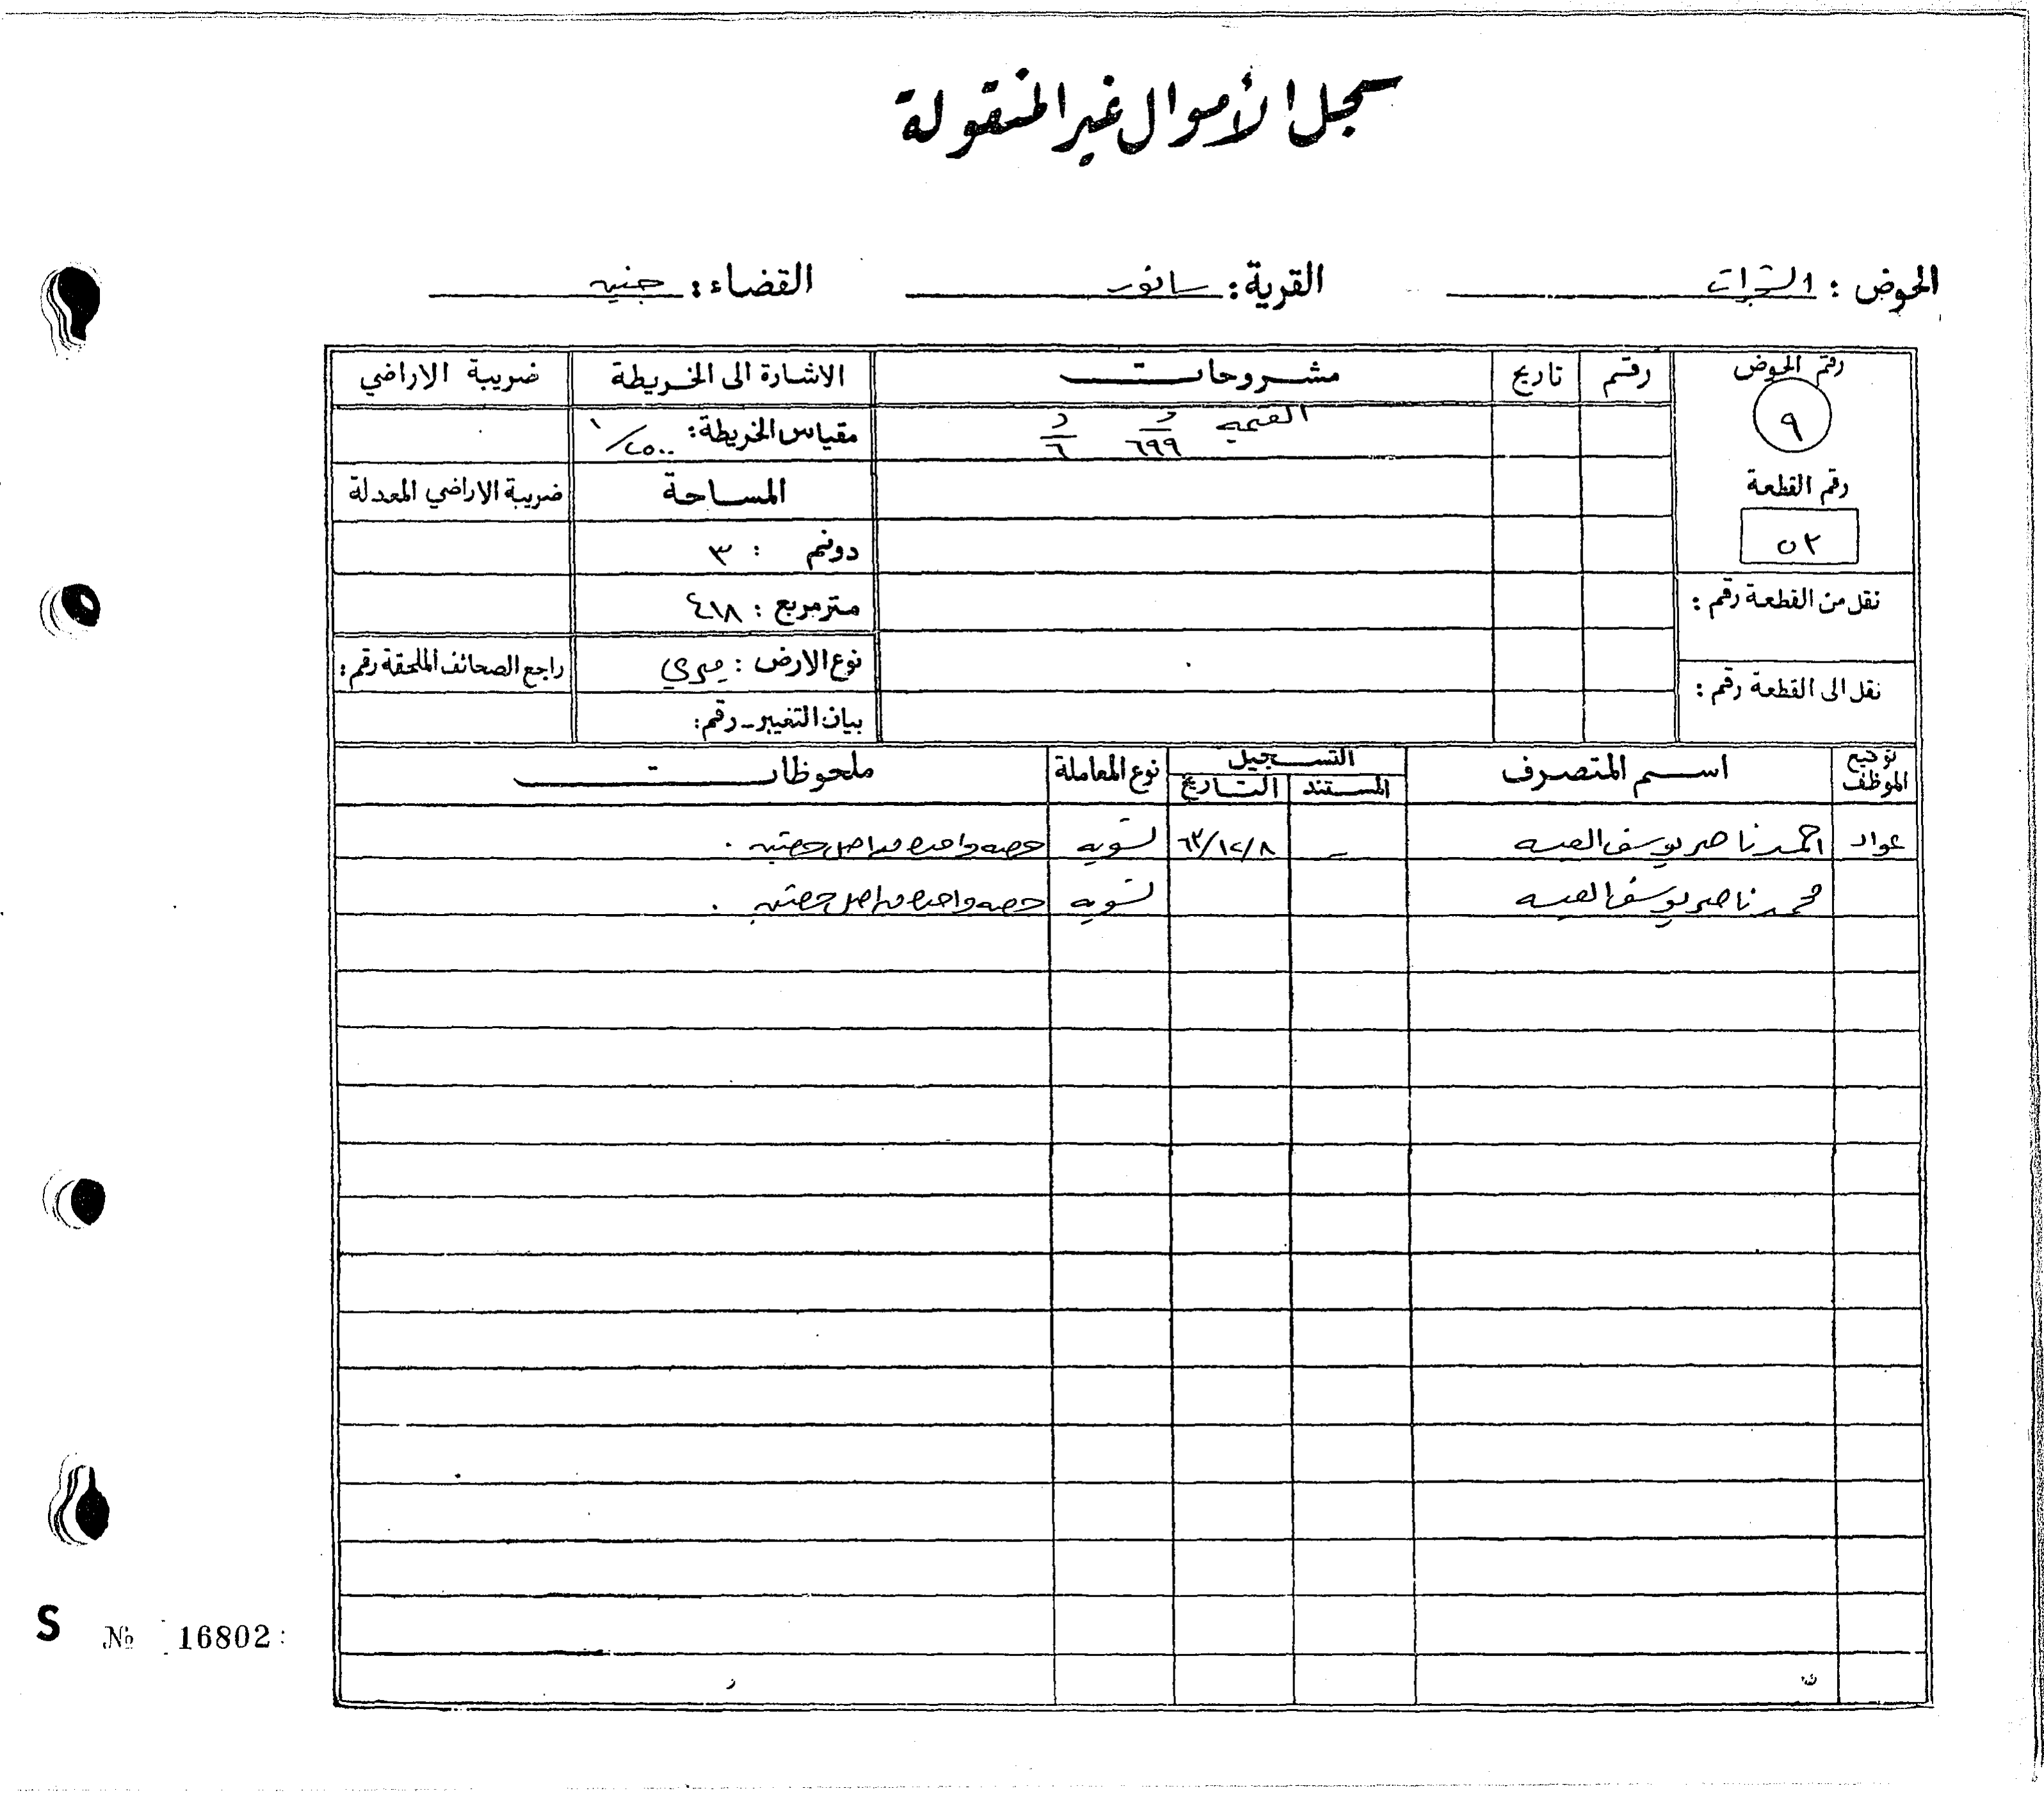 سجل الأموال غير المنقولة
الحوض : الشجرات القرية : سانور القضاء : جنين
رقم الحوض رقم تاريخ مشروحات الاشارة الى الخريطة ضريبة الاراضي
٩ القيمة د ٦٩٩ د ٦ مقياس الخريطة : ١/٢٥٠٠
رقم القطعة المساحة ضريبة الاراضي المعدلة
٥٢ دونم : ٣
نقل من القطعة رقم : متر مربع : ٤١٨
نوع الارض : ميري راجع الصحائف الملحقة رقم :
نقل الى القطعة رقم : بيان التغيير - رقم :
توقيع الموظف اسم المتصرف التسجيل نوع المعاملة ملحوظات
المستند التاريخ
عواد احمد ناصر يوسف العيسه - ٦٣/١٢/٨ تسويه حصه واحده من اصل حصتين .
محمد ناصر يوسف العيسه تسويه حصه واحده من اصل حصتين .
S № 16802